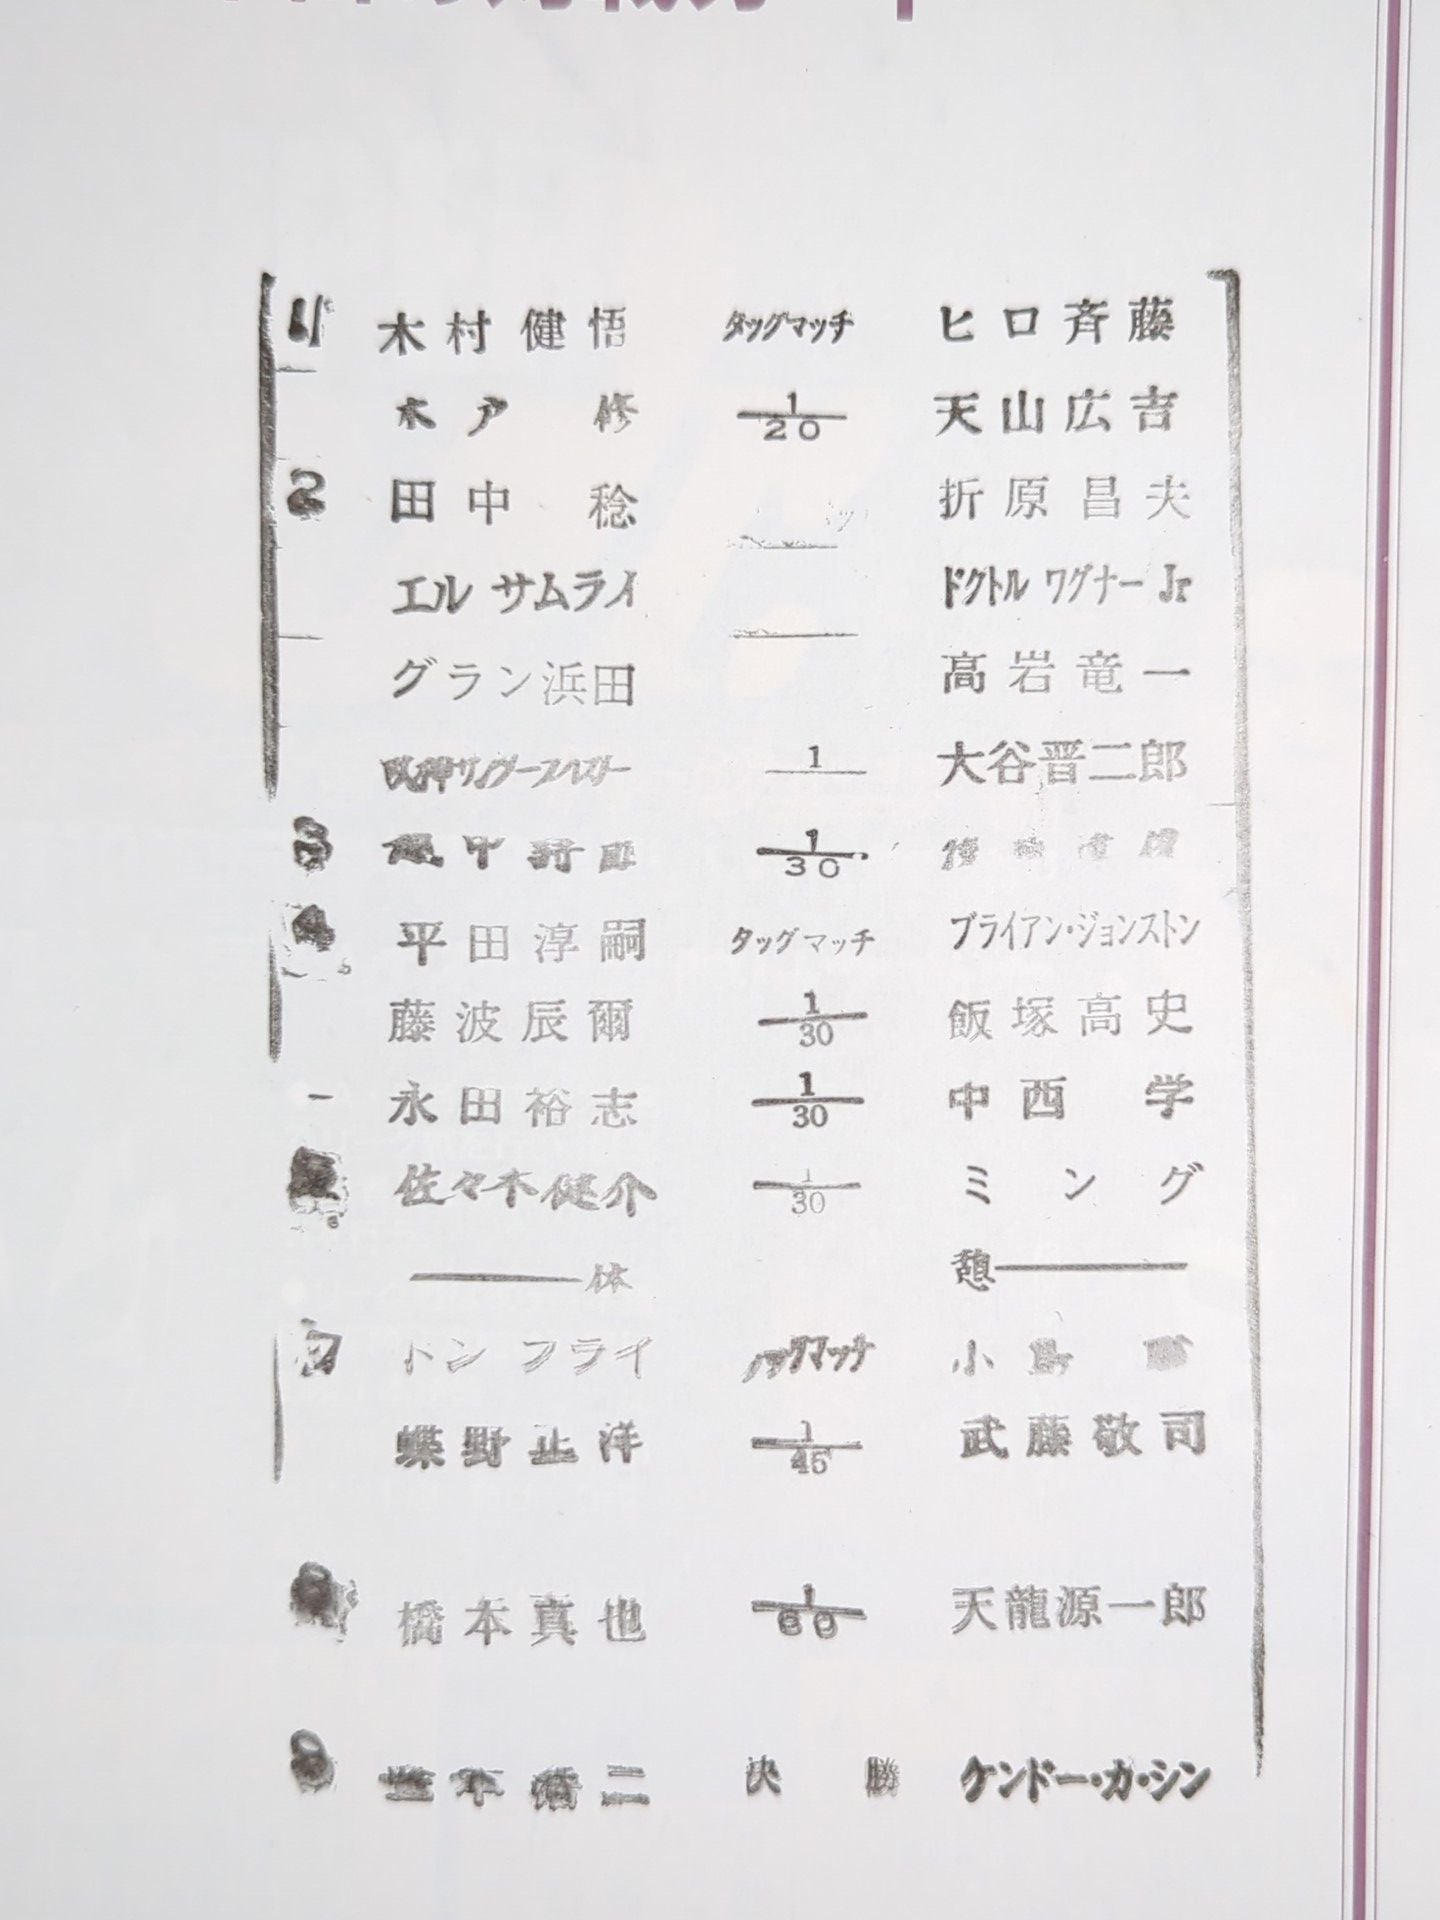 1 木村健悟 タッグマッチ ヒロ斉藤
木戸 修 1/20 天山広吉
2 田中 稔 折原昌夫
エル サムライ ドクトル ワグナー Jr
グラン浜田 高岩竜一
1 大谷晋二郎
3 1/30
4 平田淳嗣 タッグマッチ ブライアン・ジョンストン
藤波辰爾 1/30 飯塚高史
永田裕志 1/30 中西 学
佐々木健介 1/30 ミング
休 憩
ドン フライ タッグマッチ 小島
蝶野正洋 1/45 武藤敬司
橋本真也 1/60 天龍源一郎
決勝 ケンドー・カ・シン